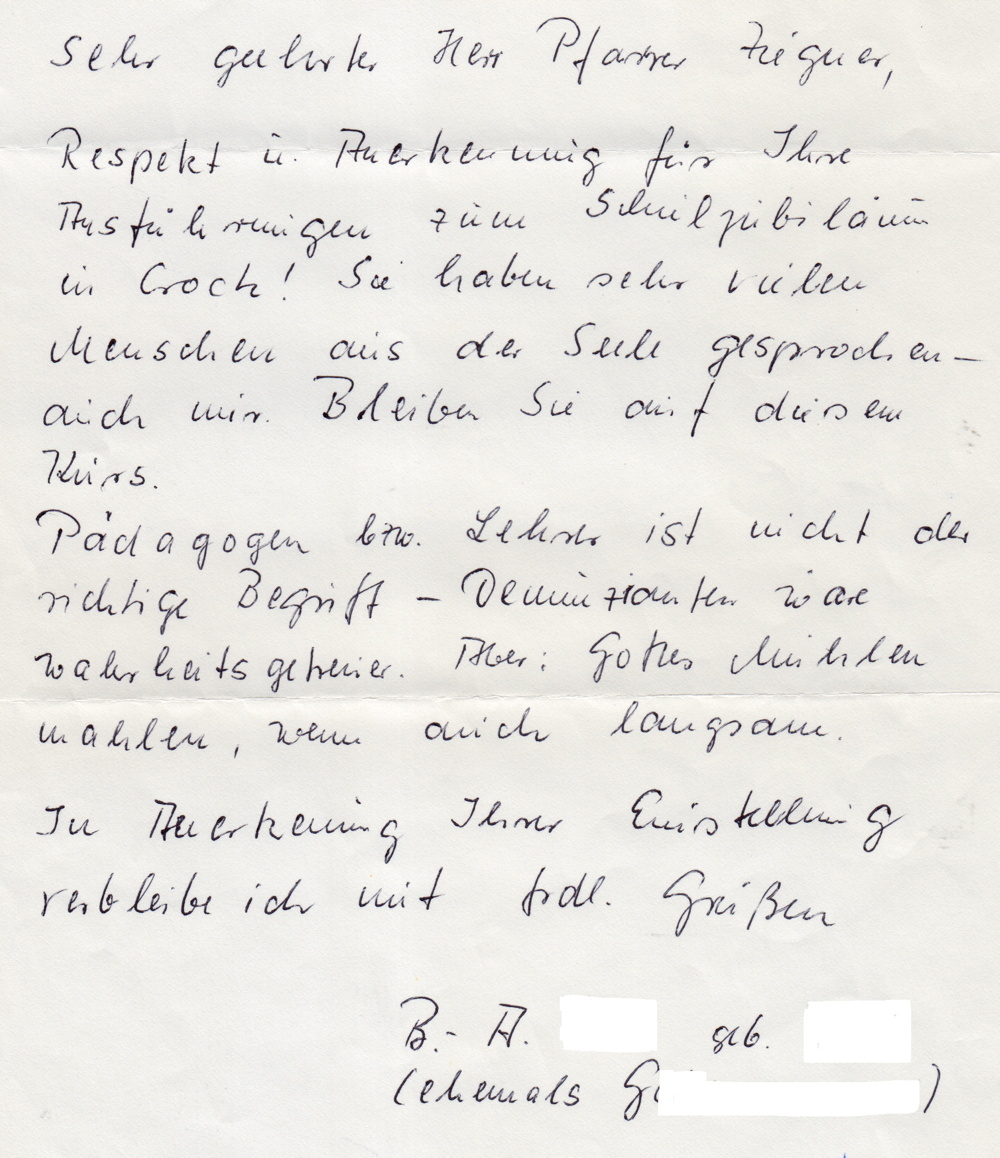 Sehr geehrter Herr Pfarrer Ziegner,
Respekt u. Anerkennung für Ihre
Ausführungen zum Schuljubiläum
in Crock! Sie haben sehr vielen
Menschen aus der Seele gesprochen –
auch mir. Bleiben Sie auf diesem
Kurs.
Pädagogen bzw. Lehrer ist nicht der
richtige Begriff – Denunzianten wäre
wahrheitsgetreuer. Aber: Gottes Mühlen
mahlen, wenn auch langsam.
In Anerkennung Ihrer Einstellung
verbleibe ich mit frdl. Grüßen
B.- A. geb.
(ehemals G )